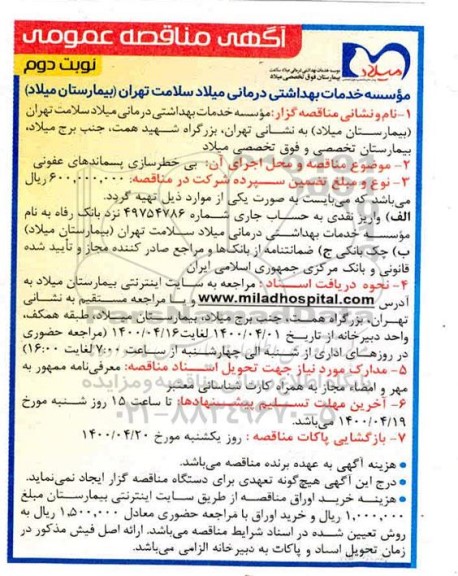 آگهی مناقصه عمومی
نوبت دوم
میلاد
موسسه خدمات بهداشتی درمانی میلاد سلامت
بیمارستان فوق تخصصی میلاد
مؤسسه خدمات بهداشتی درمانی میلاد سلامت تهران (بیمارستان میلاد)
۱-نام و نشانی مناقصه گزار: مؤسسه خدمات بهداشتی درمانی میلاد سلامت تهران
(بیمارستان میلاد) به نشانی تهران، بزرگراه شهید همت، جنب برج میلاد،
بیمارستان تخصصی و فوق تخصصی میلاد
۲- موضوع مناقصه و محل اجرای آن: بی خطرسازی پسماندهای عفونی
۳- نوع و مبلغ تضمین سپرده شرکت در مناقصه: ۶۰۰,۰۰۰,۰۰۰ ریال
می‌باشد که می‌بایست به صورت یکی از موارد ذیل تهیه گردد.
الف) واریز نقدی به حساب جاری شماره ۴۹۷۵۴۷۸۶ نزد بانک رفاه به نام
مؤسسه خدمات بهداشتی درمانی میلاد سلامت تهران (بیمارستان میلاد)
ب) چک بانکی ج) ضمانتنامه از بانک‌ها و مراجع صادر کننده مجاز و تأیید شده
قانونی و بانک مرکزی جمهوری اسلامی ایران
۴- نحوه دریافت اسناد : مراجعه به سایت اینترنتی بیمارستان میلاد به
آدرس www.miladhospital.com و یا مراجعه مستقیم به نشانی
تهران، بزرگراه همت، جنب برج میلاد، بیمارستان میلاد، طبقه همکف،
واحد دبیرخانه از تاریخ ۱۴۰۰/۰۴/۰۱ لغایت ۱۴۰۰/۰۴/۱۶ (مراجعه حضوری
در روزهای اداری از شنبه الی چهارشنبه از ساعت ۷:۰۰ لغایت ۱۶:۰۰)
۵- مدارک مورد نیاز جهت تحویل اسناد مناقصه: معرفی‌نامه ممهور به
مهر و امضاء مجاز به همراه کارت شناسایی معتبر
۶- آخرین مهلت تسلیم پیشنهادها: تا ساعت ۱۵ روز شنبه مورخ
۱۴۰۰/۰۴/۱۹ می‌باشد.
۷- بازگشایی پاکات مناقصه : روز یکشنبه مورخ ۱۴۰۰/۰۴/۲۰
● هزینه آگهی به عهده برنده مناقصه می‌باشد.
● درج این آگهی هیچ‌گونه تعهدی برای دستگاه مناقصه گزار ایجاد نمی‌نماید.
● هزینه خرید اوراق مناقصه از طریق سایت اینترنتی بیمارستان مبلغ
۱,۰۰۰,۰۰۰ ریال و خرید اوراق با مراجعه حضوری معادل ۱,۵۰۰,۰۰۰ ریال به
روش تعیین شده در اسناد شرایط مناقصه می‌باشد. ارائه اصل فیش مذکور در
زمان تحویل اسناد و پاکات به دبیرخانه الزامی می‌باشد.
۰۲۱-۸۸۳۴۹۶۷۰-۵